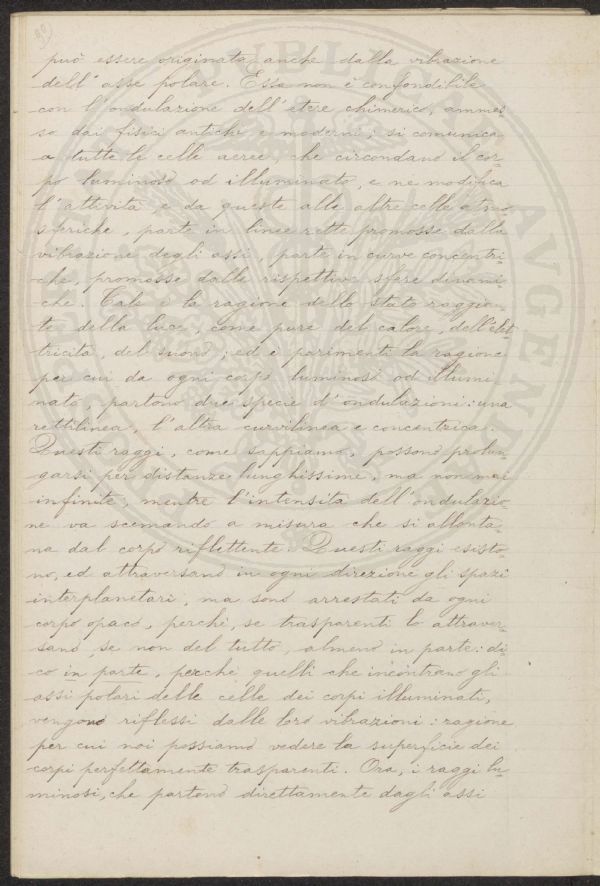 può essere originata anche dalla vibrazione
dell'asse polare. Essa non è confondibile
con l'ondulazione dell'etere chimerico, ammes=
so dai fisici antichi e moderni; si comunica
a tutte le celle aeree, che circondano il cor=
po luminoso od illuminato, e ne modifica
l'attività e da queste alle altre celle atmo=
sferiche, parte in linee rette promosse dalla
vibrazione degli assi, parte in curve concentri=
che, promosse dalle rispettive sfere dinami=
che. Tale è la ragione dello stato raggian=
te della luce, come pure del calore, dell'elet=
tricità, del suono; ed è parimenti la ragione
per cui da ogni corpo luminoso od illumi=
nato, partono due specie d'ondulazioni: una
rettilinea, l'altra curvilinea e concentrica.
Questi raggi, come sappiamo, possono prolun=
garsi per distanze lunghissime, ma non mai
infinite, mentre l'intensità dell'ondulazio=
ne va scemando a misura che si allonta=
na dal corpo riflettente. Questi raggi esisto=
no, ed attraversano in ogni direzione gli spazi
interplanetari, ma sono arrestati da ogni
corpo opaco, perché, se trasparenti lo attraver=
sano, se non del tutto, almeno in parte: di=
co in parte, perché quelli che incontrano gli
assi polari delle celle dei corpi illuminati,
vengono riflessi dalle loro vibrazioni: ragione
per cui noi possiamo vedere la superficie dei
corpi perfettamente trasparenti. Ora, i raggi lu=
minosi, che partono direttamente dagli assi